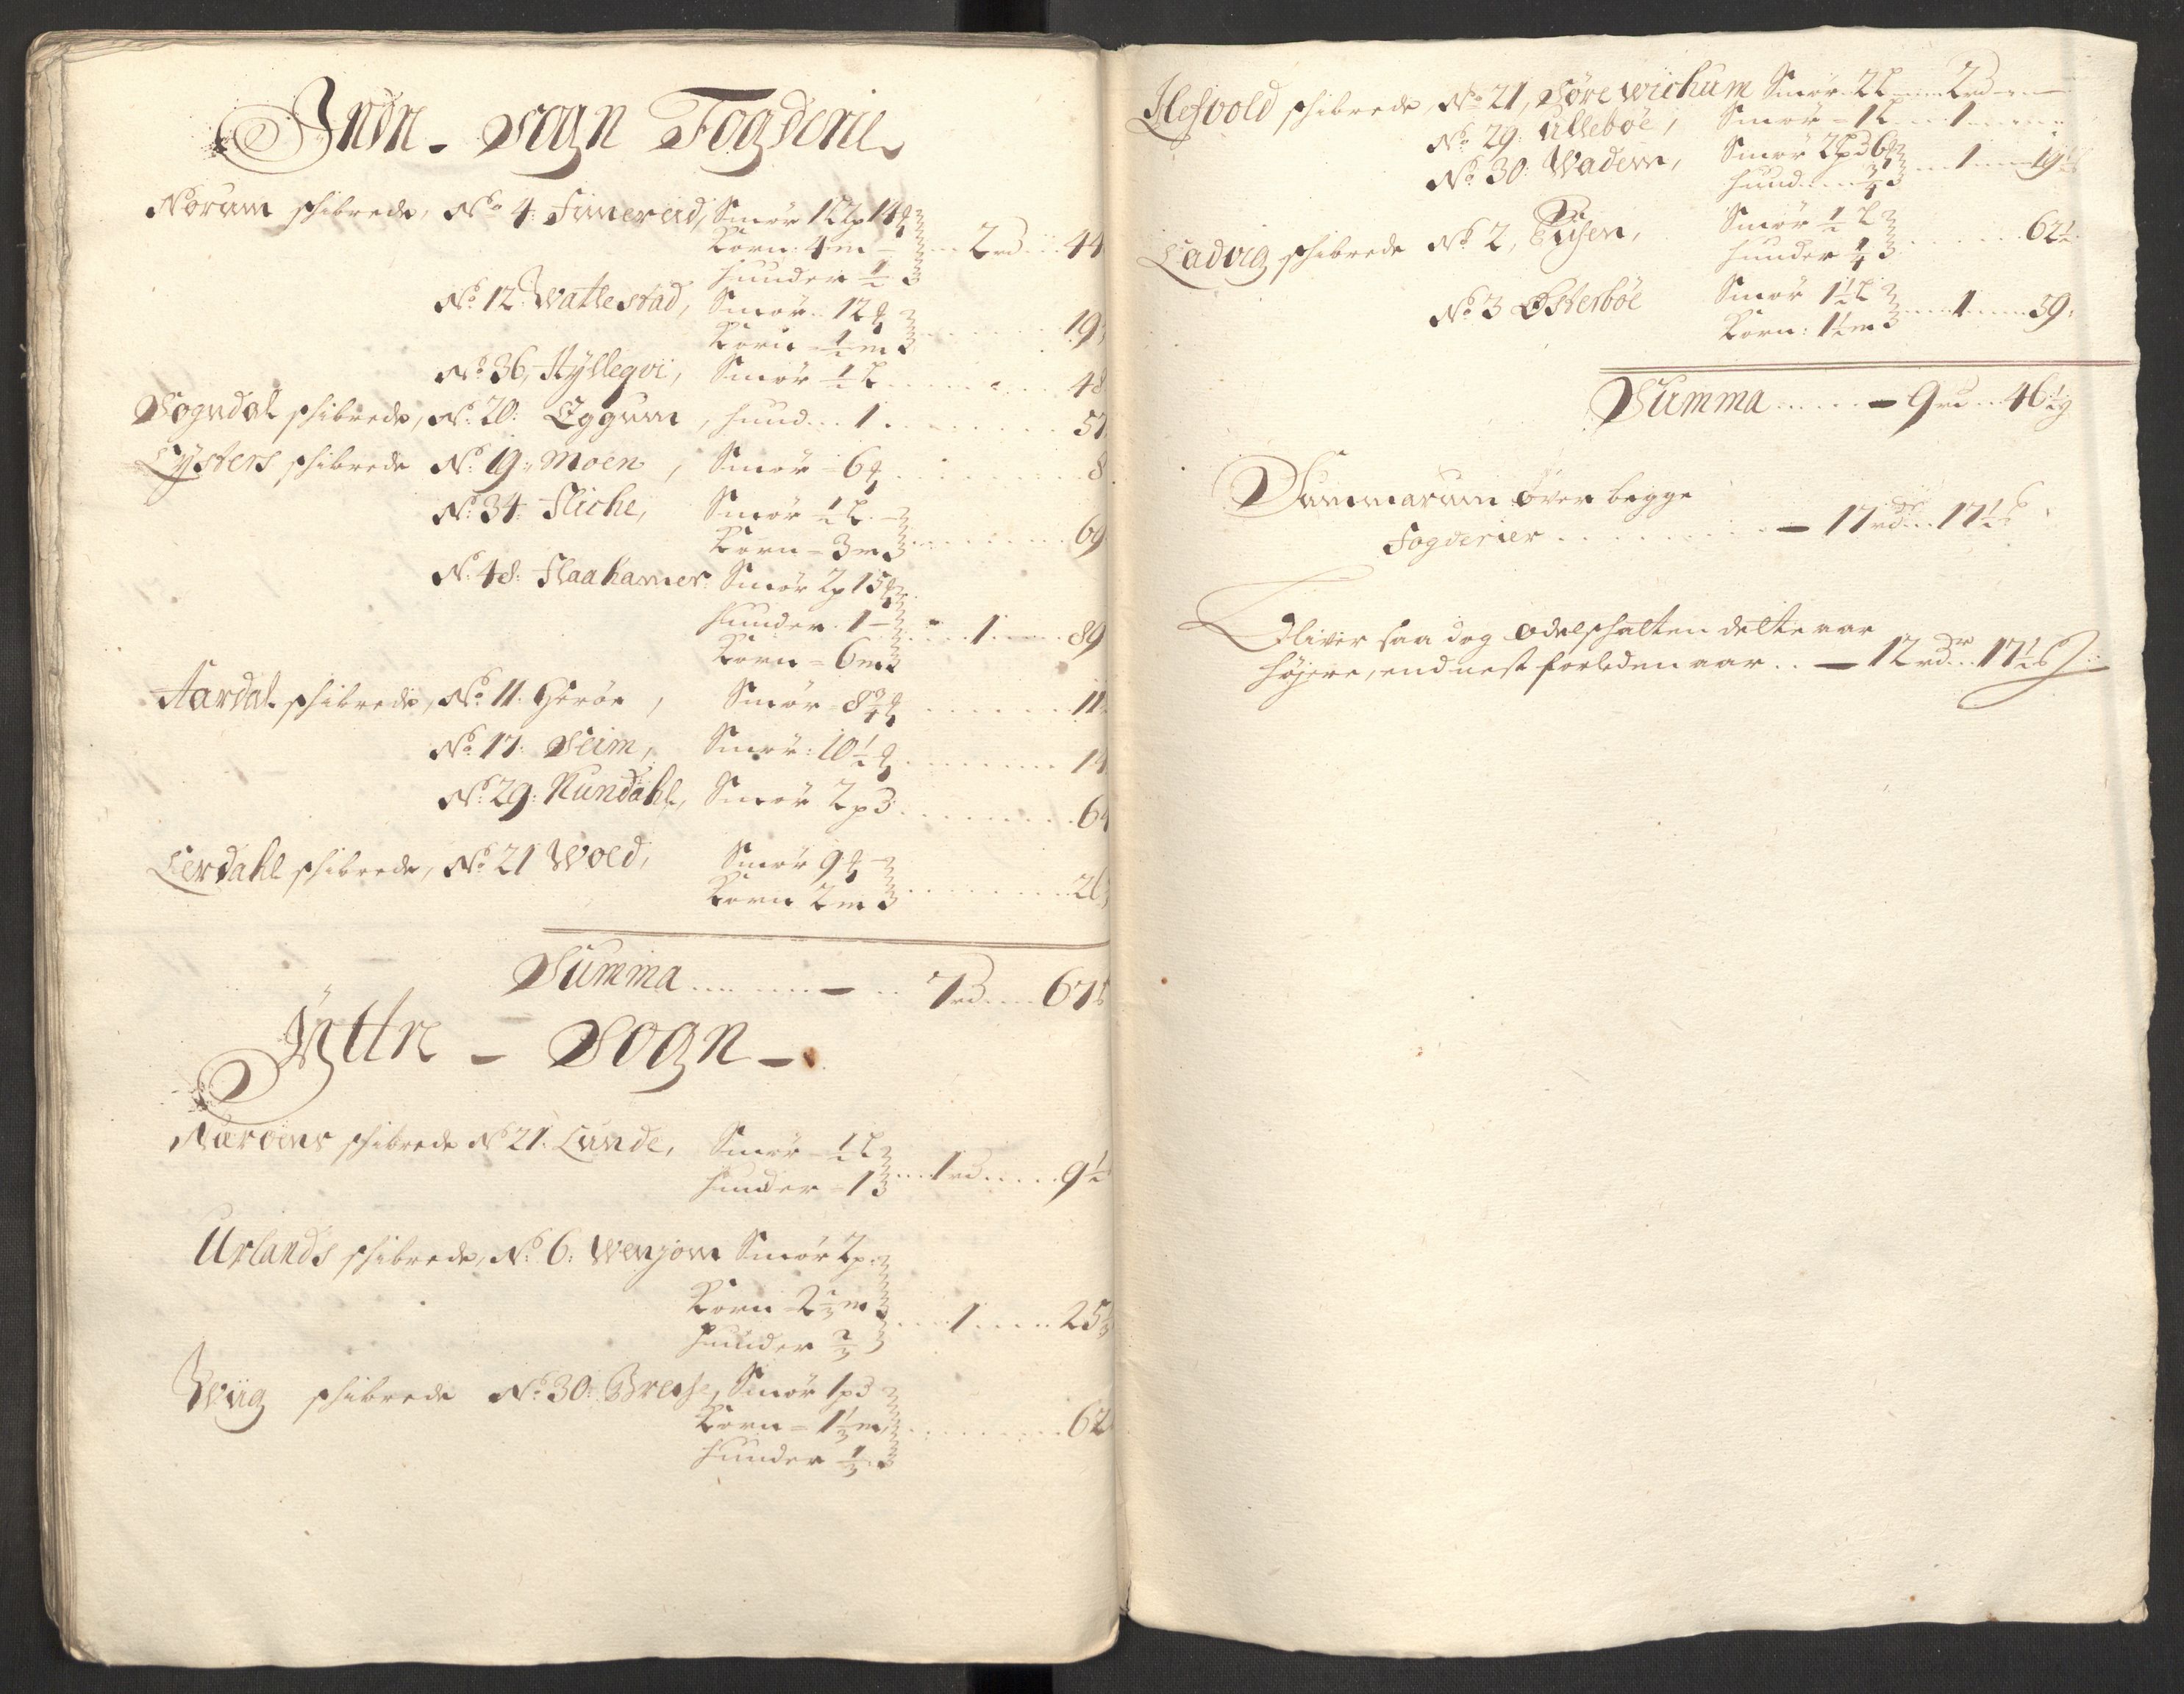 Indre - Sogn Fogderie
Norum schibrede, No 4. Simereid, Smör 1L 2p 14
Korn: 4 m 2 rd 44
huuder ½
No 12. Wattestad, Smör 12
Korn ½ m 19
No 36, Hyllegvi, Smör ½ L 48
Sogndal schibrede, No 20: Eggum, huud 1 57
Lysters schibrede No 19: Moen, Smör 6 8
No 34. Sliche, Smör ½ L
Korn 3 m 69
No 48. Slaahamer Smör 2p 15
huuder 1 1 89
Korn 6 m
Aardal schibrede, No 11. Herön, Smör 8¾ 11
No 17. Seim, Smör: 10½ 14
No 29. Nundahl, Smör 2p 64
Lerdahl schibrede, No 21 Wold, Smör 9
Korn 2 m 26
Summa 7 rd 67
Yttre - Sogn
Næröens schibrede No 21. Lunde, Smör ½ L
huuder 1 1 rd 9½
Urlands schibrede, No 6: Wenjom Smör 2p
Korn 2⅔ m 1 25
huuder ⅔
Wiig schibrede No 30. Brecke, Smör 1 p
Korn 1⅓ m 62
huuder ⅓
Hefvold schibrede, No 21, Söre Wichum Smör 2L 2 rd
No 29. Ullebøe, Smör 1L 1
No 30: Wadem, Smör 2 pd 6
huud ¾ 1 19½
Ladvig schibrede No 2, Tusen, Smör ½ L
huuder ¼ 62½
No 3 Østerbøe Smör 1½ L
Korn: 1½ m 1 39
Summa 9 rd 46½
Summarum öwer begge
Fogderier 17 rd 17½
Bliver saa dog Odelschatten dette aar
höjere, end nest forleden aar 12 rdr 17½